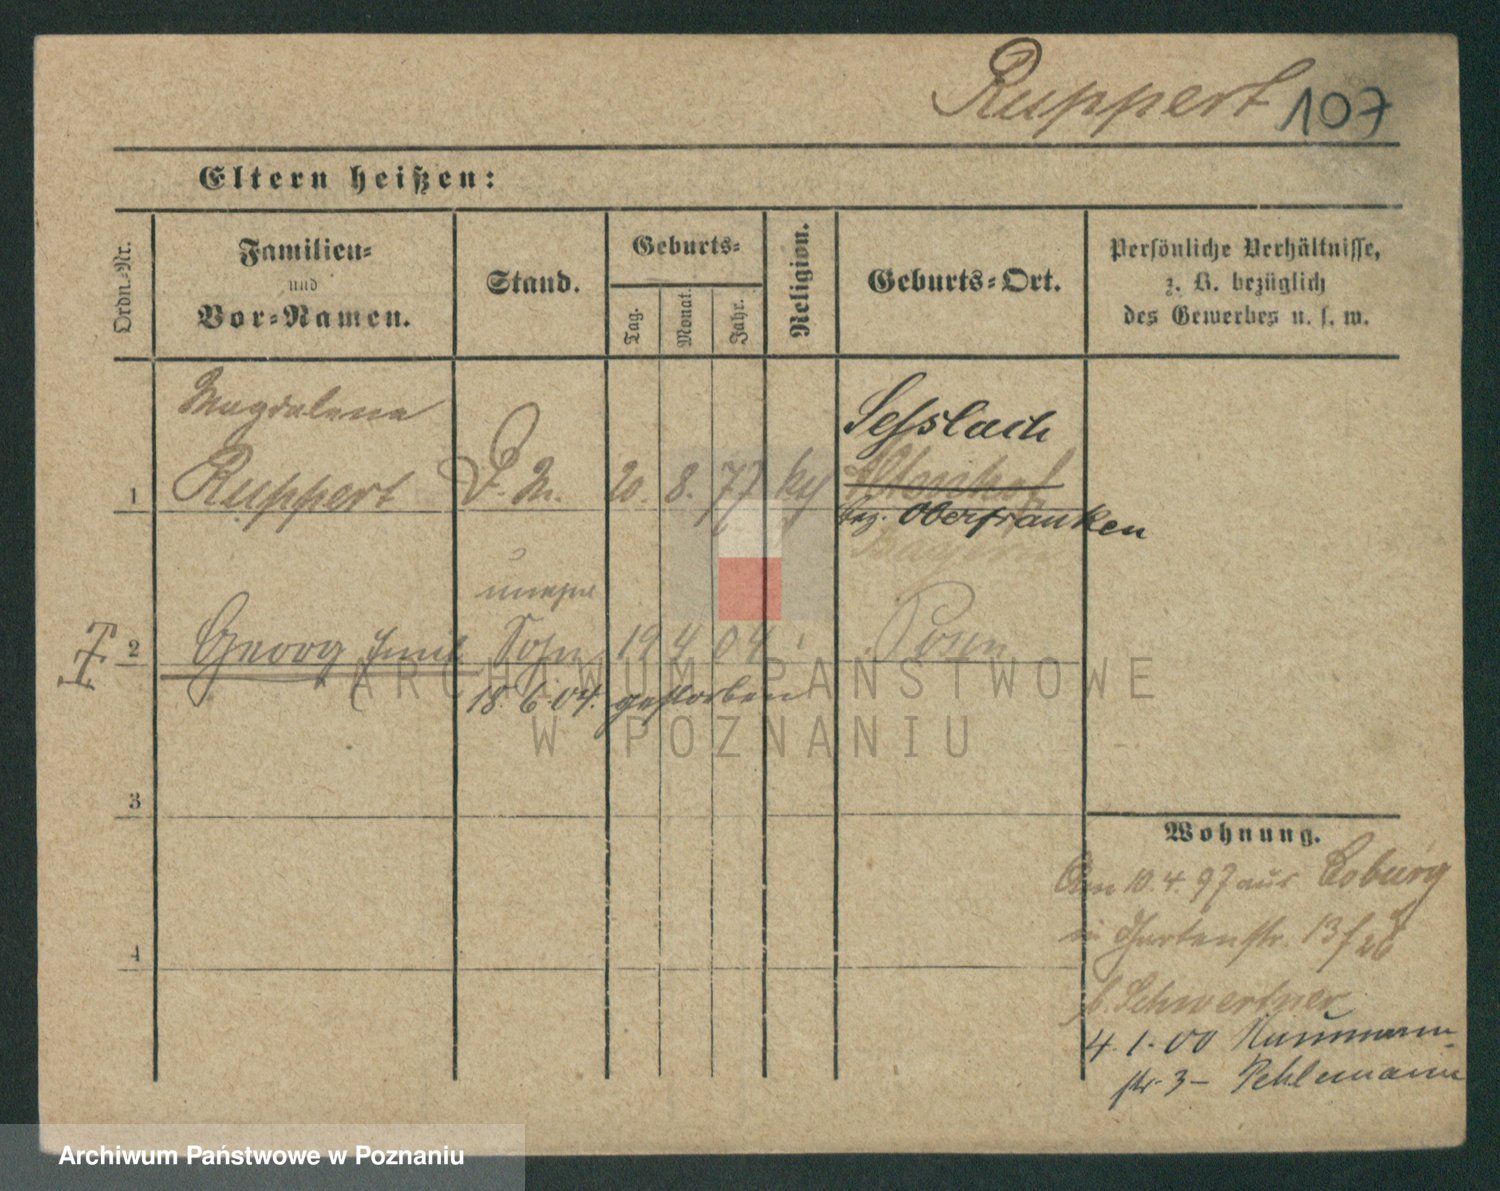 Ruppert 107
Eltern heißen:
Ordn.-Nr.
Familien-
und
Vor-Namen.
Stand.
Geburts-
Tag.
Monat.
Jahr.
Religion.
Geburts-Ort.
Persönliche Verhältnisse,
z. B. bezüglich
des Gewerbes u. s. w.
Magdalena
Sesslach
1 Ruppert 20. 8. 77
bez. Oberfranken
Bayern
unehel
2 Georg Sohn 19 4 04 Posen
18.6.04. gestorben
3
4
Wohnung.
Am 10.4.97 aus Coburg
in Gartenstr. 13
b. Schwertner
4.1.00 Naumann-
str. 3 - Pehlemann
ARCHIWUM PAŃSTWOWE
W POZNANIU
Archiwum Państwowe w Poznaniu